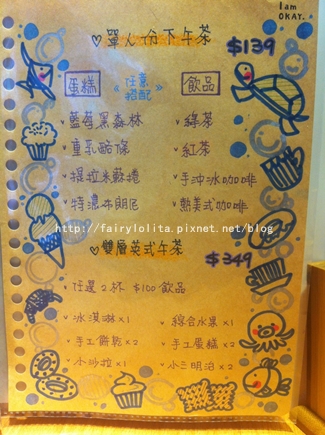 I am
OKAY.
♡ 單人份下午茶
$139
蛋糕 《任意搭配》 飲品
藍莓黑森林 綠茶
重乳酪條 紅茶
提拉米蘇捲 手沖冰咖啡
特濃布朗尼 熱美式咖啡
http://fairylolita.pixnet.net/blog
♡ 雙層英式午茶
$349
任選2杯 $100飲品
冰淇淋x1 綜合水果x1
手工餅乾x2 手工蛋糕x2
小沙拉x1 小三明治x2